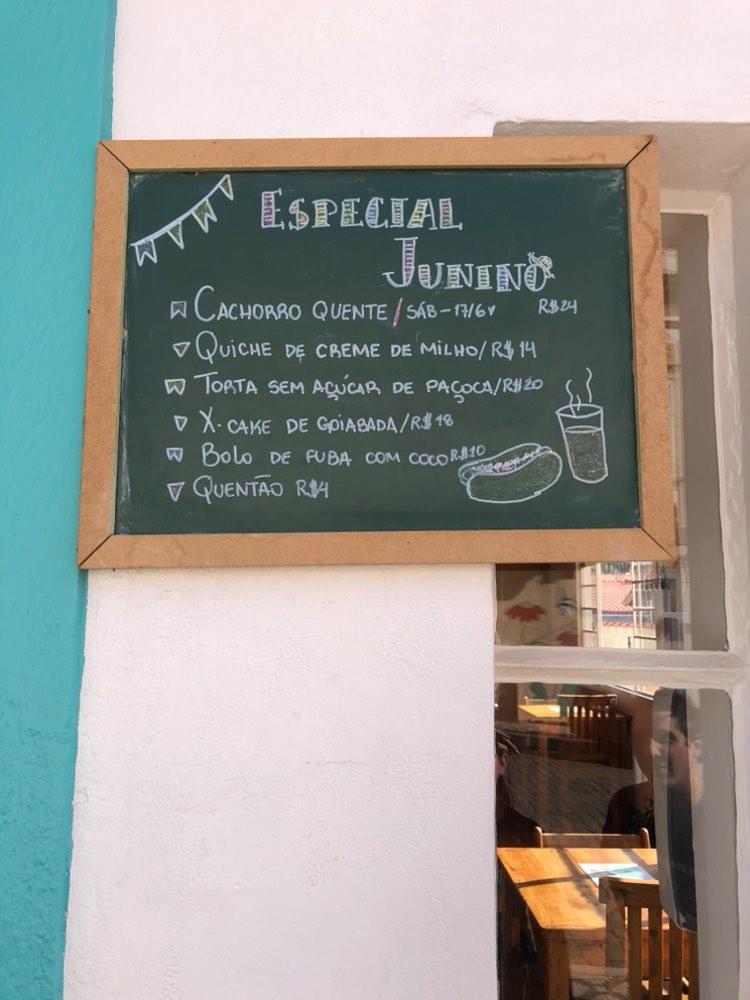 ESPECIAL
JUNINO
CACHORRO QUENTE / SÁB - 17/6 R$24
QUICHE DE CREME DE MILHO / R$14
TORTA SEM AÇÚCAR DE PAÇOCA / R$20
X-CAKE DE GOIABADA / R$18
BOLO DE FUBA COM COCO R$10
QUENTÃO R$4